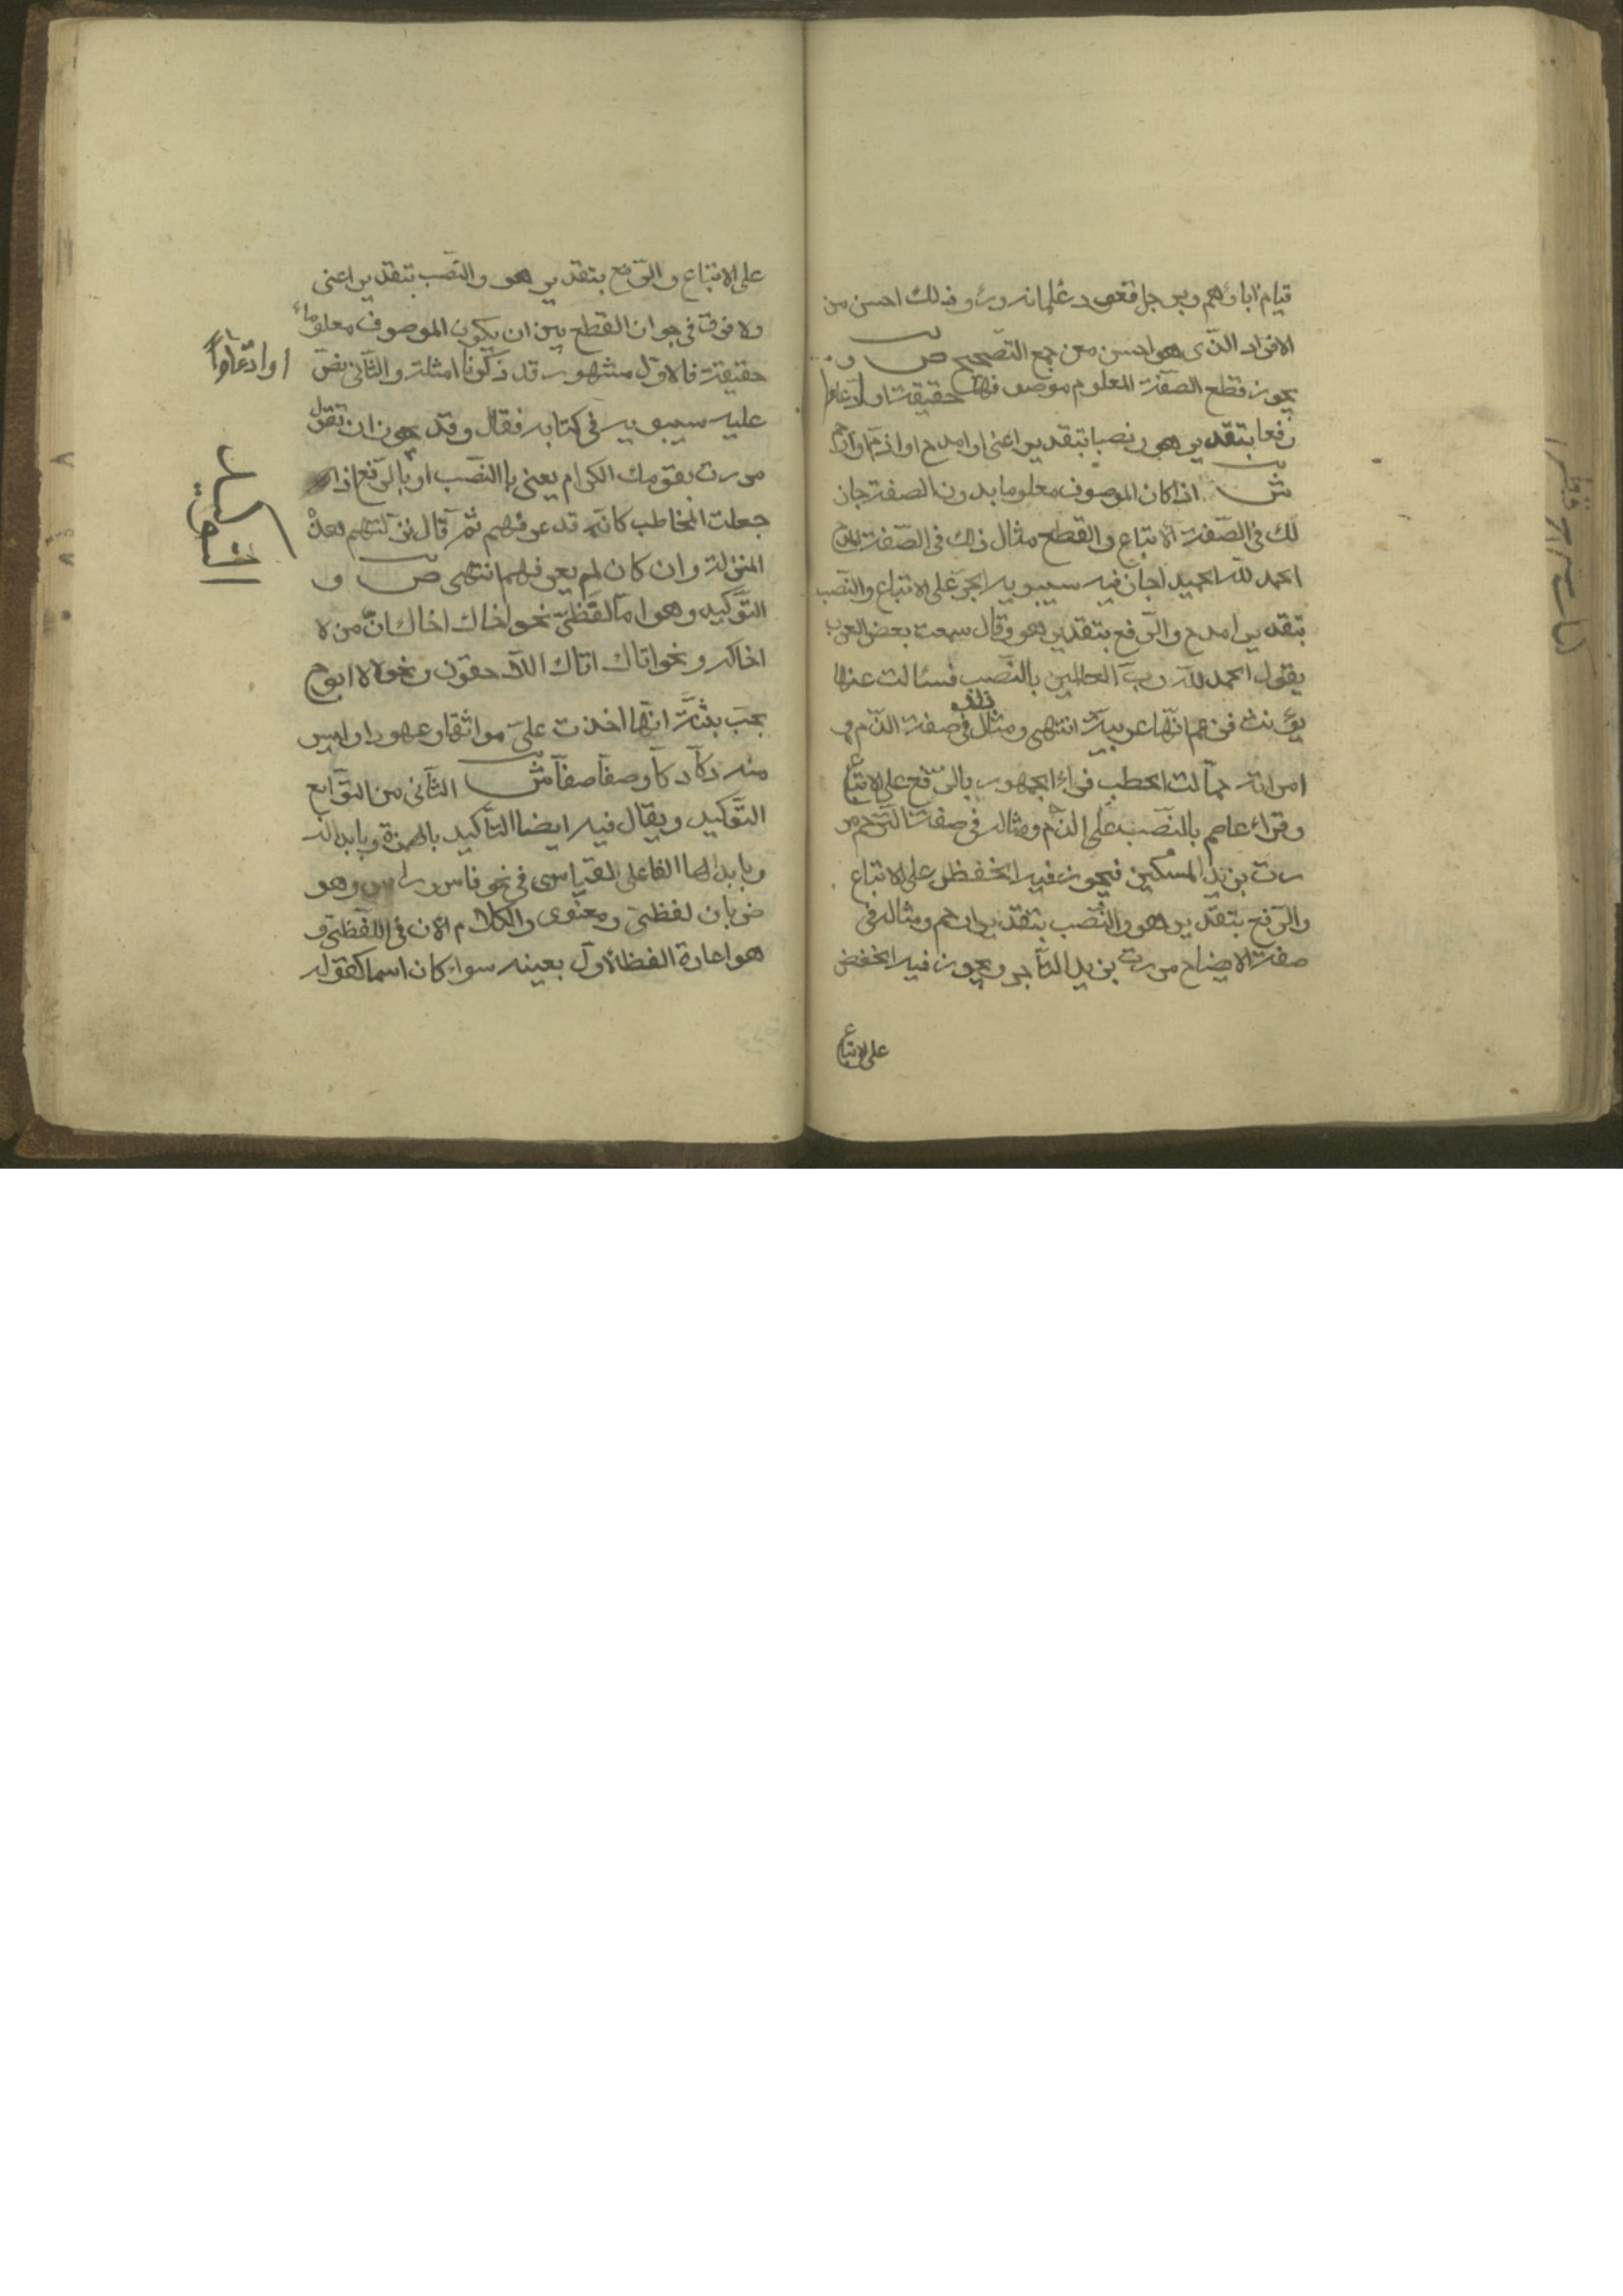 قيام اباؤهم وبرجل قعود غلمانه وروذلك احسن من
الافراد الذى هو احسن من جمع التصحيح ص و
يجوز قطع الصفة المعلوم موصوفها حقيقة او ادعاءا
رفعا بتقدير هو ونصبا بتقدير اعنى او امدح او اذم او ارحم
ش اذا كان الموصوف معلوما بدون الصفة جاز
لك فى الصفة الاتباع والقطع مثال ذلك فى الصفة المدح
الحمد لله الحميد اجاز فيه سيبويه الجر على الاتباع والنصب
بتقدير امدح والرفع بتقدير هو وقال سمعت بعض العرب
يقول الحمد لله رب العالمين بالنصب فسئالت عنها
يونس فزعم انها عربية انتهى ومثال فى صفة الذم و
امراته حمالت الحطب قراء الجمهور بالرفع على الاتباع
وقراء عاصم بالنصب على الذم ومثاله فى صفة الترحم مر
رت بزيد المسكين فيجوز فيه الخفظ على الاتباع
والرفع بتقدير هو والنصب بتقدير ارحم ومثاله فى
صفة الايضاح مررت بزيد التاجر ويجوز فيه الخفض
على الاتباع
على الاتباع والرفع بتقدير هو والنصب بتقدير اعنى
ولا فرق فى جواز القطع بين ان يكون الموصوف معلوما
حقيقة فالاول مشهور قد ذكرنا امثلة والثانى نص
او ادعاءا
عليه سيبويه فى كتابه فقال وقد يجوز ان تقول
مررت بقومك الكرام يعنى با النصب او بالرفع اذا
جعلت المخاطب كانه قد عرفهم ثم قال نزلتهم هذه
المنزلة وان كان لم يعرفهم انتهى ص و
التوكيد وهو اما لفظى نحو اخاك اخاك ان من لا
اخاله ونحو اتاك اتاك اللاحقون ونحو لا لا ابوح
بحب بثنة انها اخذت على مواثقا وعهودا وليس
منه دكا دكا وصفا صفا ش الثانى من التوابع
التوكيد ويقال فيه ايضا التأكيد بالهمزة وبابدالها
وبابدالها الفا على القياسى فى نحو فاس وراس وهو
ضربان لفظى ومعنوى والكلام الان فى اللفظى و
هو اعادة الفظ الاول بعينه سواء كان اسما كقوله